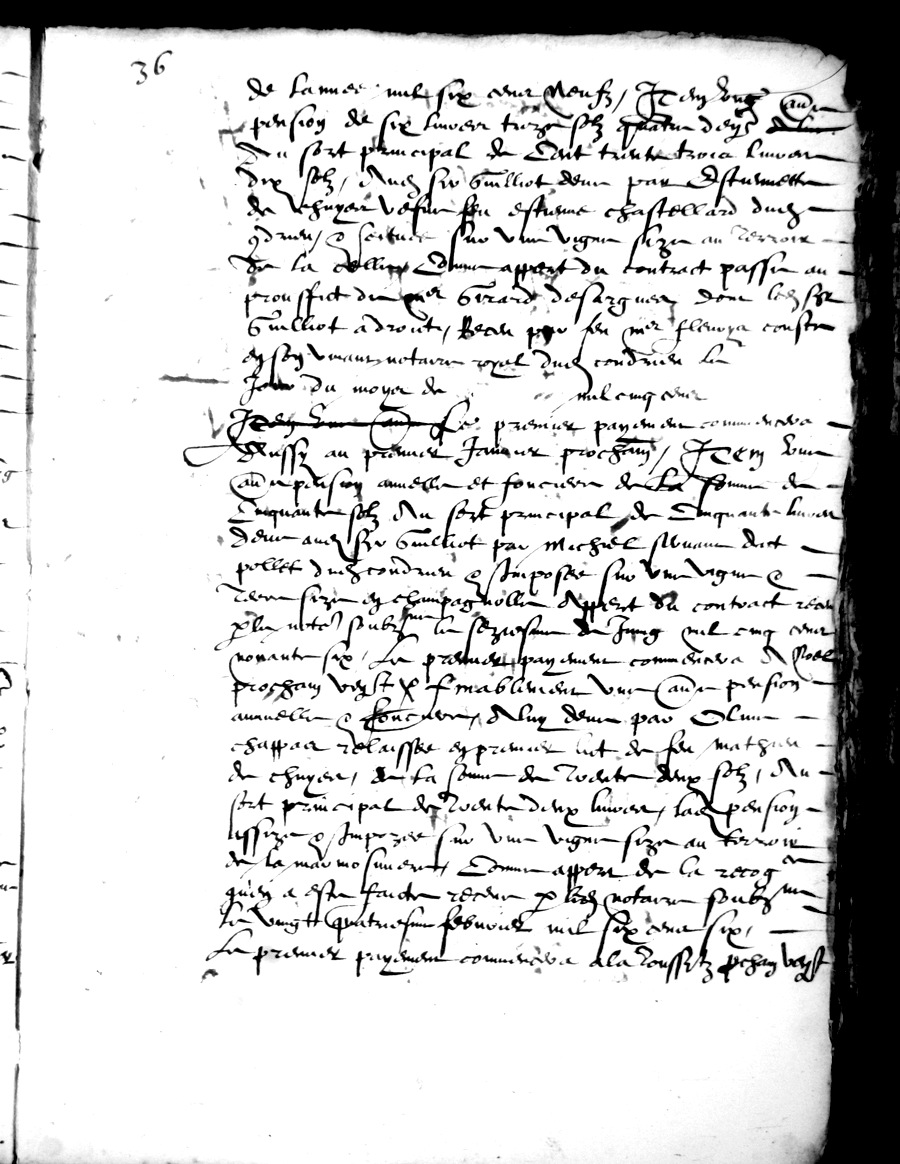 36
de lannee mil six cens Neufz, Item une an^le
pension de six livres treze solz quatre den^s
Au sort principal de Cent trente trois livres
dix solz, Aud sr Guilliot deue par Estiennette
de chuyer vefve feu estienne chastellard dud
Condrieu, & scituee sur une vigne size au Terroir
de la Comme appert du contract passe au
prouffict de me Girard desargues, dont led sr
Guilliot a droict, Receu par feu me
en son vivant notaire royal dud condrieu le
Jour du moys de mil cinq cens
Item une an^le Le premier payement commencera
Aussy au premier Janvier prochain, Item une
an^le pension annuelle et fonciere de La somme de
Cinquante solz Au sort principal de Cinquante livres
deue aud sr Guilliot par Michiel dict
pollet dud condrieu & Imposee sur une vigne &
Terre size en champagnolle Appert du contract receu
p le not^e soubz^ne le seziesme de Juing mil cinq cens
nonante six, Le premier payement commencera A Noel
prochain ven^t & f inablement une an^le pension
annuelle & fonciere, A luy deue par
chappas relaissee en premier lict de feu mathieu
de chuyer, de La somme de Trente deux solz, Au
sort principal de Trente deux livres, lad pension
assize & Imposee sur une vigne size au terroir
de la Comme appert de la recog^on
qu'en a este faicte receue p led notaire soubz^ne
le vingt quatriesme febvrier mil six cens six,
Le premier payement commencera a la Toussainctz pchain ven^t